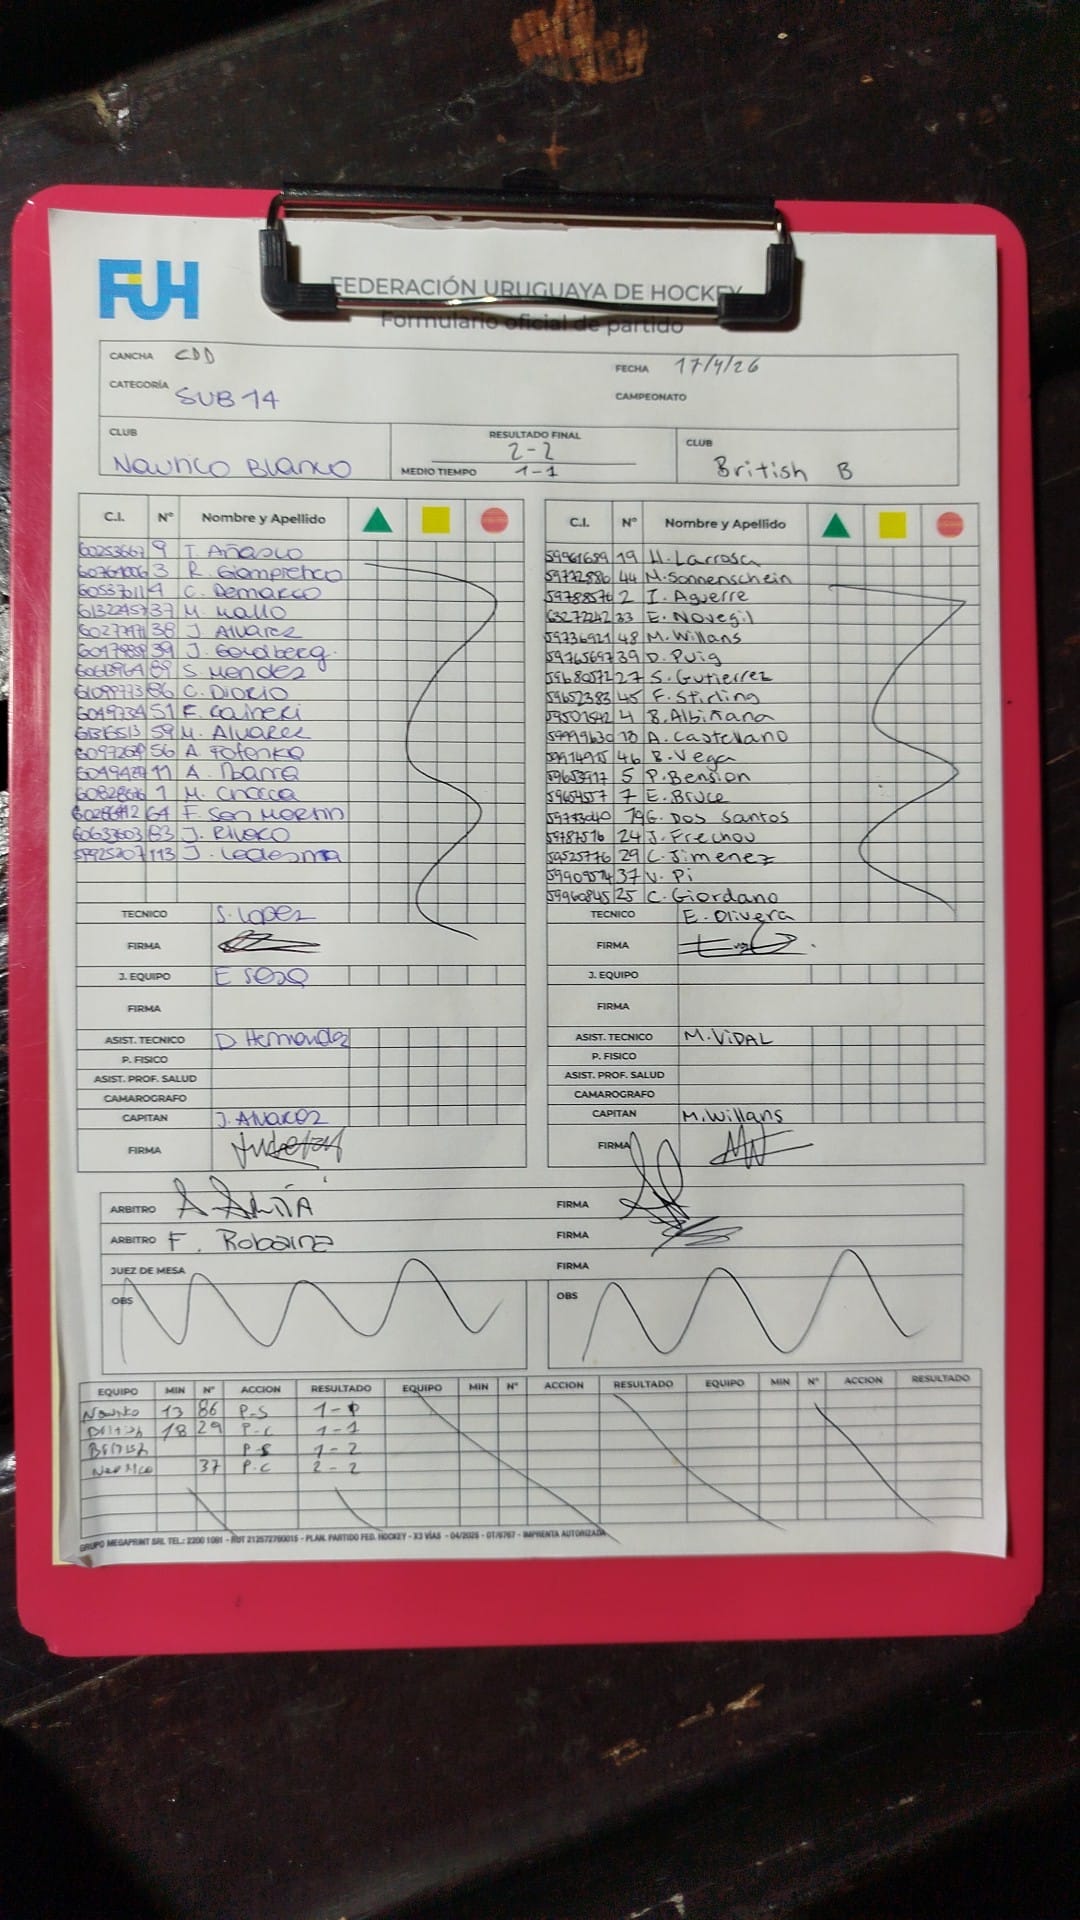 FUH
FEDERACIÓN URUGUAYA DE HOCKEY
Formulario oficial de partido
CANCHA CDD
FECHA 17/4/26
CATEGORÍA SUB 14
CAMPEONATO
CLUB
RESULTADO FINAL
CLUB
Nautico Blanco
2-2
British B
MEDIO TIEMPO 1-1
C.I. N° Nombre y Apellido
60253667 9 T. Añasco
3 R.
C. Demarco
37 M. Mallo
38 J. Alvarez
39 J. Goldberg
89 S. Mendez
86 C. Diorio
51 F.
59 M. Alvarez
56 A.
11 A. Ibarra
1 M. Chocca
64 F. San Martin
83 J. Rivero
113 J. Ledesma
TECNICO S. Lopez
FIRMA
J. EQUIPO E Sosa
FIRMA
ASIST. TECNICO D. Hernandez
P. FISICO
ASIST. PROF. SALUD
CAMAROGRAFO
CAPITAN J. Alvarez
FIRMA
C.I. N° Nombre y Apellido
59961659 19 H. Larrosa
59772886 44 M. Sonnenschein
59788576 2 I. Aguerre
63272242 33 E. Novegil
59736921 48 M. Willans
59765697 39 D. Puig
59680572 27 S. Gutierrez
59652383 45 F. Stirling
59501542 4 B. Albiñana
A. Castellano
46 B. Vega
59653917 5 P. Bension
59654557 7 E. Bruce
G. Dos Santos
59787516 24 J. Frechou
59525776 29 C. Jimenez
37 V. Pi
59960845 25 C. Giordano
TECNICO E. Olivera
FIRMA
J. EQUIPO
FIRMA
ASIST. TECNICO M. ViDAL
P. FISICO
ASIST. PROF. SALUD
CAMAROGRAFO
CAPITAN M. Willans
FIRMA
ARBITRO
FIRMA
ARBITRO F. Robaina
FIRMA
JUEZ DE MESA
FIRMA
OBS
OBS
EQUIPO MIN N° ACCION RESULTADO EQUIPO MIN N° ACCION RESULTADO EQUIPO MIN N° ACCION RESULTADO
Nautico 13 86 P-S 1-0
British 18 29 P-C 1-1
British P-S 1-2
Nautico 37 P.C 2-2
GRUPO MEGAPRINT SRL TEL.: 2200 1091 - RUT 212572760015 - PLAN. PARTIDO FED. HOCKEY - X3 VÍAS - 04/2025 - OT/6767 - IMPRENTA AUTORIZADA